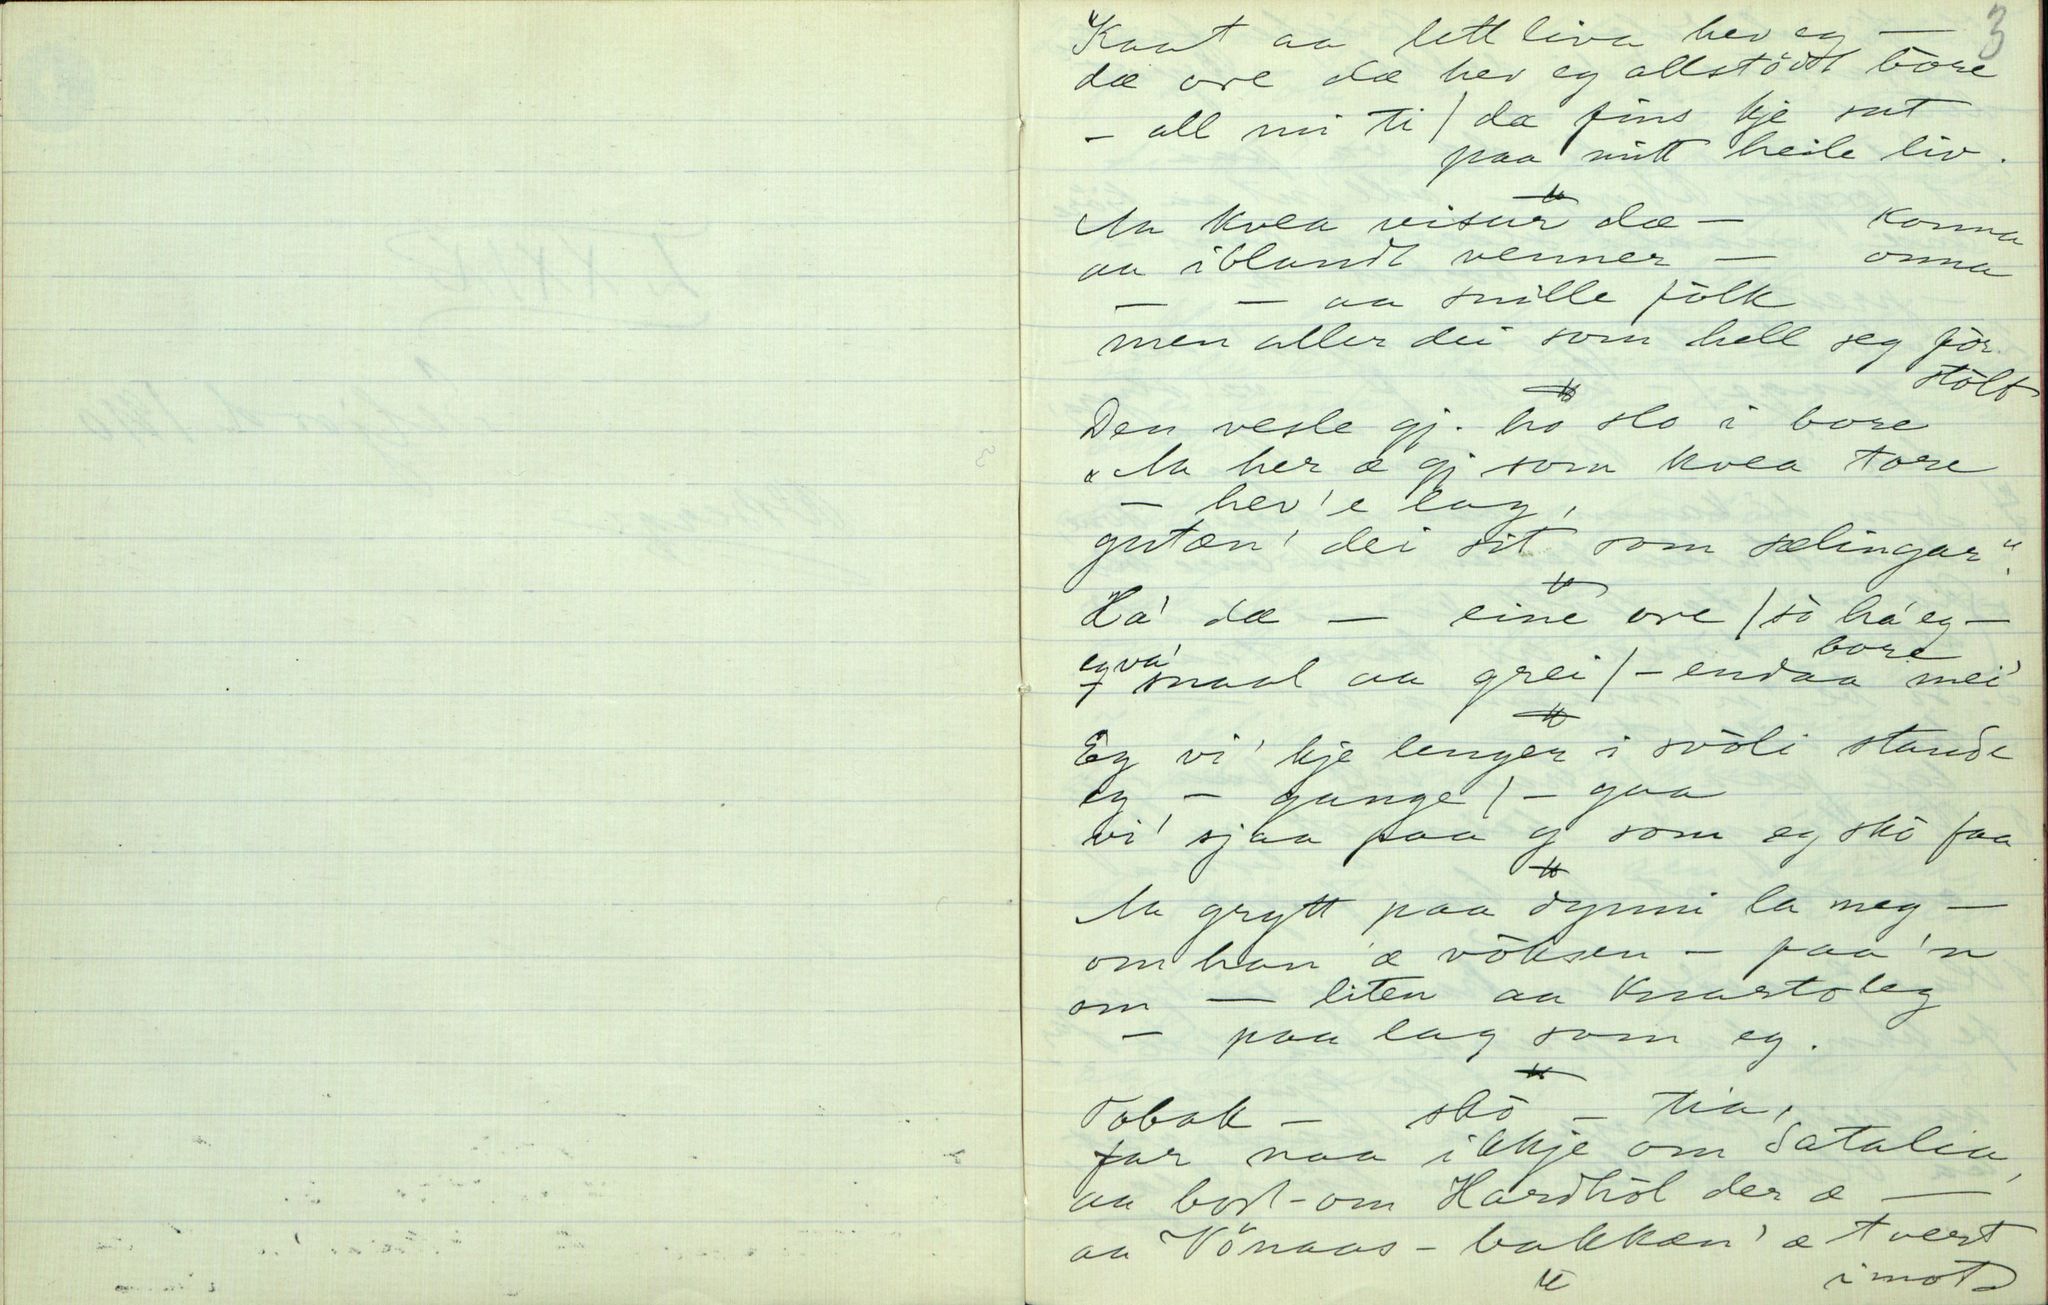 3
"Kaat aa lett liva hev eg —
dæ ore dæ hev eg allstödt bore
— all mi ti / da fins kje sut
paa mitt heile liv.
Aa kvea visur dæ — konna
aa iblandt venner — onna
— — aa snille folk
men aller dei som hell seg för
stölt
Den vesle gj. ho slo i bore
"Aa her æ gj som kvea tore
— hev'e lag,
gutæn' dei sit som sælingar".
Ha' dæ — eine ore / so há eg —
bore
eg va'
— snaal aa grei / — endaa mei'
Eg vi' kje lenger i svòli stande
eg — gange / — gaa
vi' sjaa paa g som eg skò faa
Aa grytt paa dynni la meg —
om han æ vöksen — paa'n
om — liten aa knartoleg
— paa lag som eg.
Tobak — skò — tia,
far naa ikkje om Sætalia,
aa bort-om Hardhòl der æ —
aa Vönaas-bakkæn' æ tvert
imot